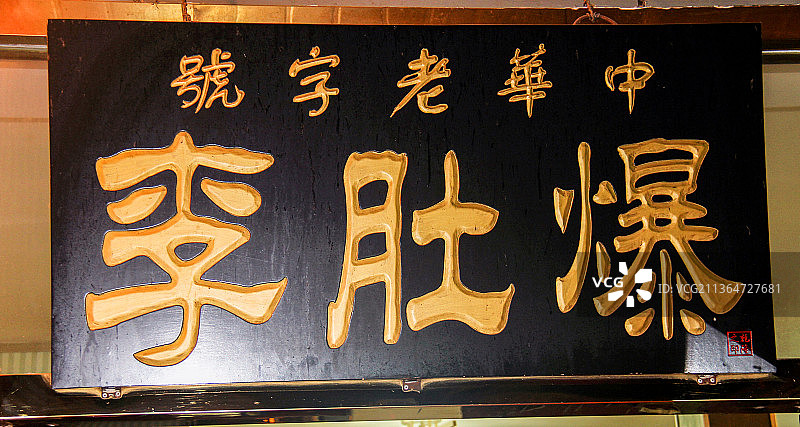 中華老字號
爆肚李
VCG211364727681